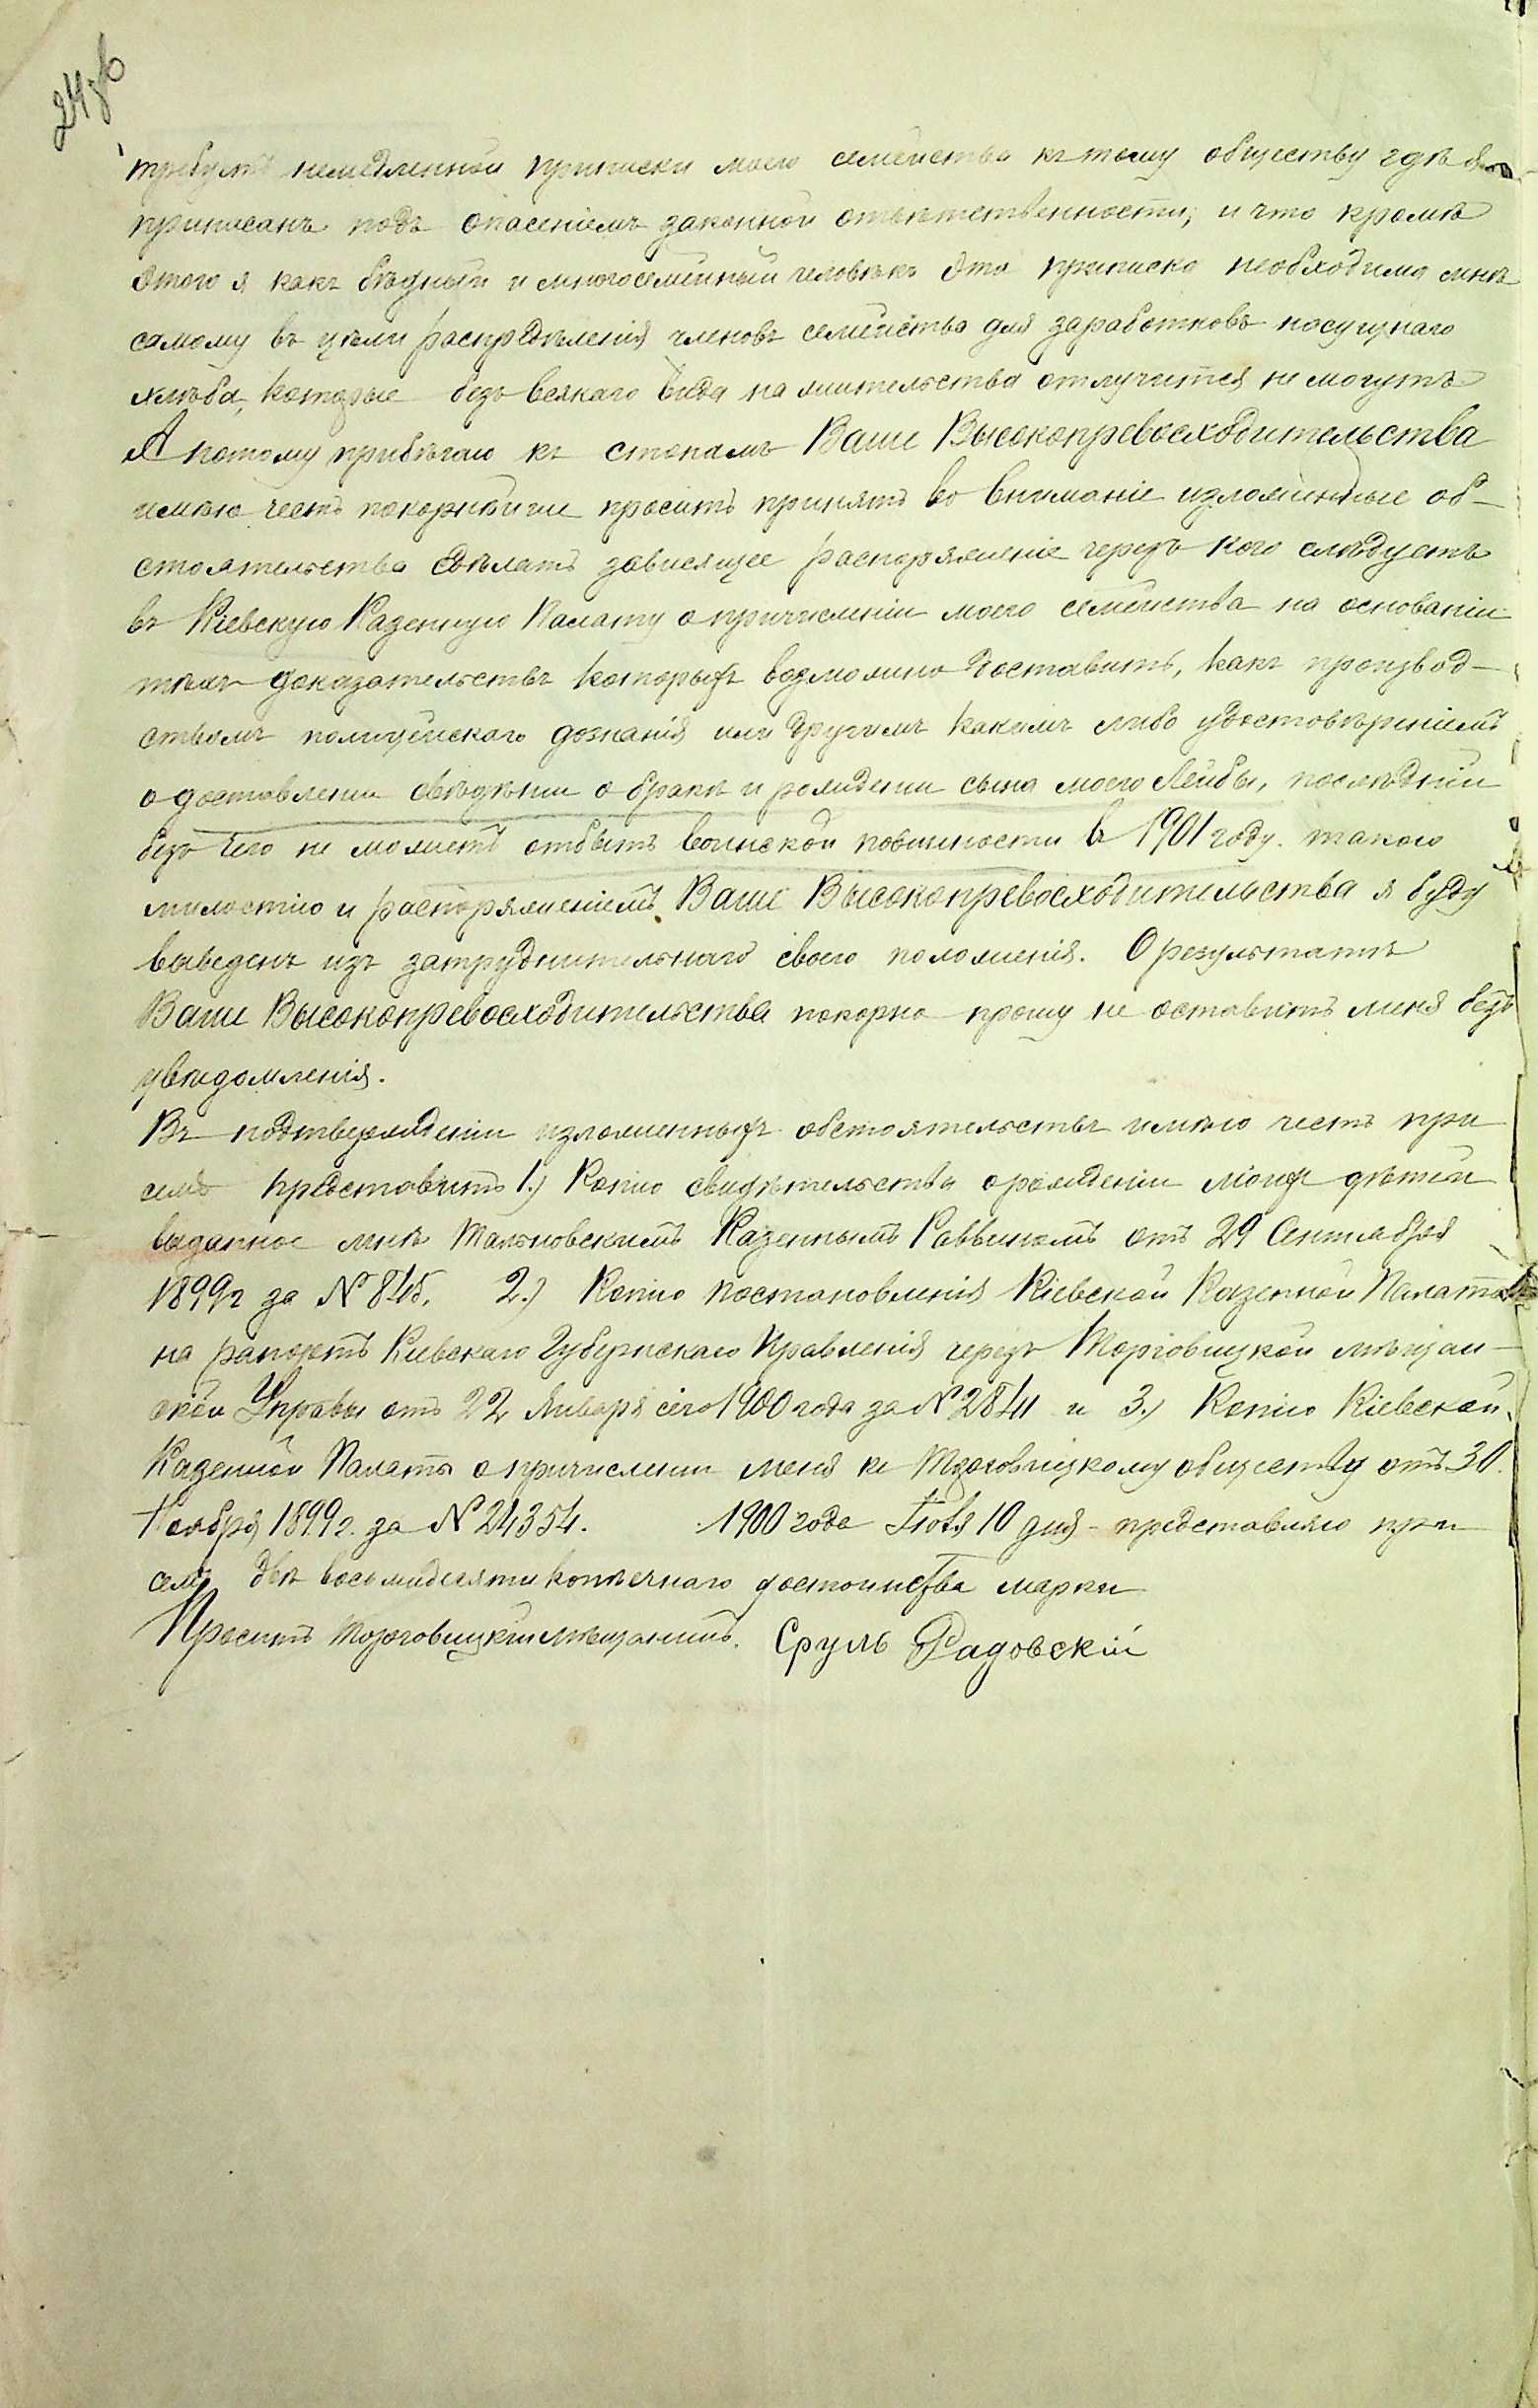 24об
требуетъ немедленной приписки моего семейства къ тому обществу гдѣ я
приписанъ подъ опасеніемъ законной отвѣтственности; и что кромѣ
этого я какъ бѣдный и многосемейный человѣкъ эта приписка необходима мнѣ
самому въ цѣли распредѣленія членовъ семейства для заработковъ насущнаго
хлѣба, которые безъ всякаго вида на жительства отлучится не могутъ
А потому прибѣгаю къ стопамъ Ваше Высокопревосходительства
имѣю честь покорнѣйше просить принять во вниманіе изложенные об-
стоятельства сдѣлать зависящее распоряженіе черезъ кого слѣдуетъ
въ Кіевскую Казенную Палату о причисленіи моего семейства на основаніи
тѣхъ доказательствъ которыхъ возможно доставить, какъ производ-
ствомъ полицейскаго дознанія или другимъ какимъ либо удостовѣреніемъ
о доставлении свѣдѣнии о бракѣ и рождении сына моего Лейбы, послѣдній
безъ чего не можетъ отбыть воинской повинности в 1901 году. такою
милостію и распоряженіемъ Ваше Высокопревосходительства я буду
выведенъ изъ затруднительнаго своего положенія. О результатѣ
Ваше Высокопревосходительства покорно прошу не оставить меня безъ
увѣдомленія.
Въ подтвержденіи изложенныхъ обстоятельствъ имѣю честь при
семъ представить 1.) Копію свидѣтельства о рожденіи моихъ дѣтей
выданное мнѣ Тальновскимъ Казеннымъ Раввиномъ отъ 29 Сентября
1899г за № 845. 2.) Копію постановленія Кіевской Казенной Палаты
на рапортъ Киевскаго Губернскаго Правленія черезъ Торговицкой мѣщан-
ской Управы отъ 22 Января сего 1900 года за № 2844 и 3.) Копію Кіевской
Казенной Палаты о причислении меня къ Торговицкому обществу отъ 30
Ноября 1899г. за № 24354. 1900 года Іюля 10 дня представляю при
семъ двѣ восьмидесяти копѣечнаго достоинства марки
Проситъ Торговицкій мѣщанинъ. Сруль Радовскій